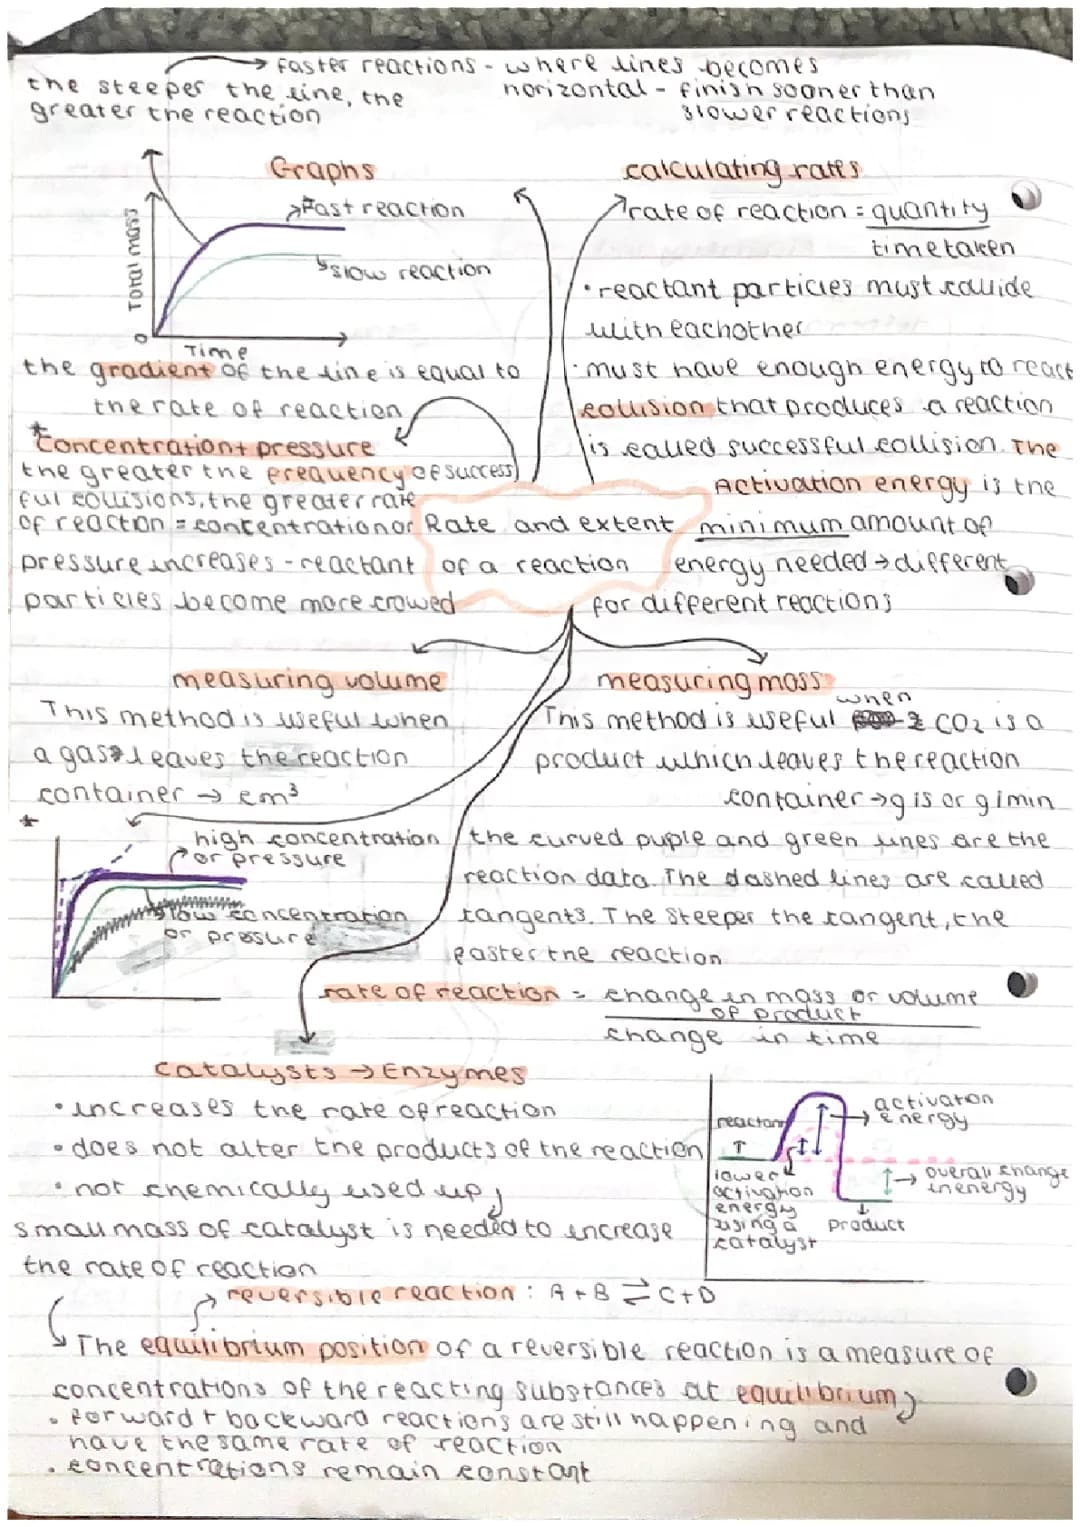 the steeper the line, the
greater the reaction
faster reactions - where lines becomes
horizontal - finish sooner than
slower reactions
Graphs
Total mass
Fast reaction
slow reaction
0
Time
the gradient of the line is equal to
the rate of reaction
calculating rates
rate of reaction = quantity
time taken
• reactant particles must collide
with eachother
• must have enough energy to react
collision that produces a reaction
is called successful collision. The
Activation energy is the
minimum amount of
energy needed → different
for different reactions
* Concentration + pressure
the greater the frequency of success
ful collisions, the greater rate
of reaction = concentration or
pressure increases - reactant
particles become more crowed
Rate and extent
of a reaction
measuring volume
This method is useful when
a gas leaves the reaction
container → cm³
measuring mass
This method is useful when CO2 is a
product which leaves the reaction
container → g/s or g/min
*
high concentration
or pressure
low concentration
or pressure
the curved puple and green lines are the
reaction data. The dashed lines are called
tangents. The steeper the tangent, the
faster the reaction
rate of reaction = change in mass or volume
of product
change in time
Catalysts → Enzymes
• increases the rate of reaction
• does not alter the products of the reaction
• not chemically used up,
small mass of catalyst is needed to increase
the rate of reaction
reactant
activaton
energy
lower
activation
energy
using a
catalyst
overall change
in energy
product
reversible reaction : A + B ⇌ C + D
The equilibrium position of a reversible reaction is a measure of
concentrations of the reacting substances at equilibrium,
• forward + backward reactions are still happening and
have the same rate of reaction
• concentrations remain constant